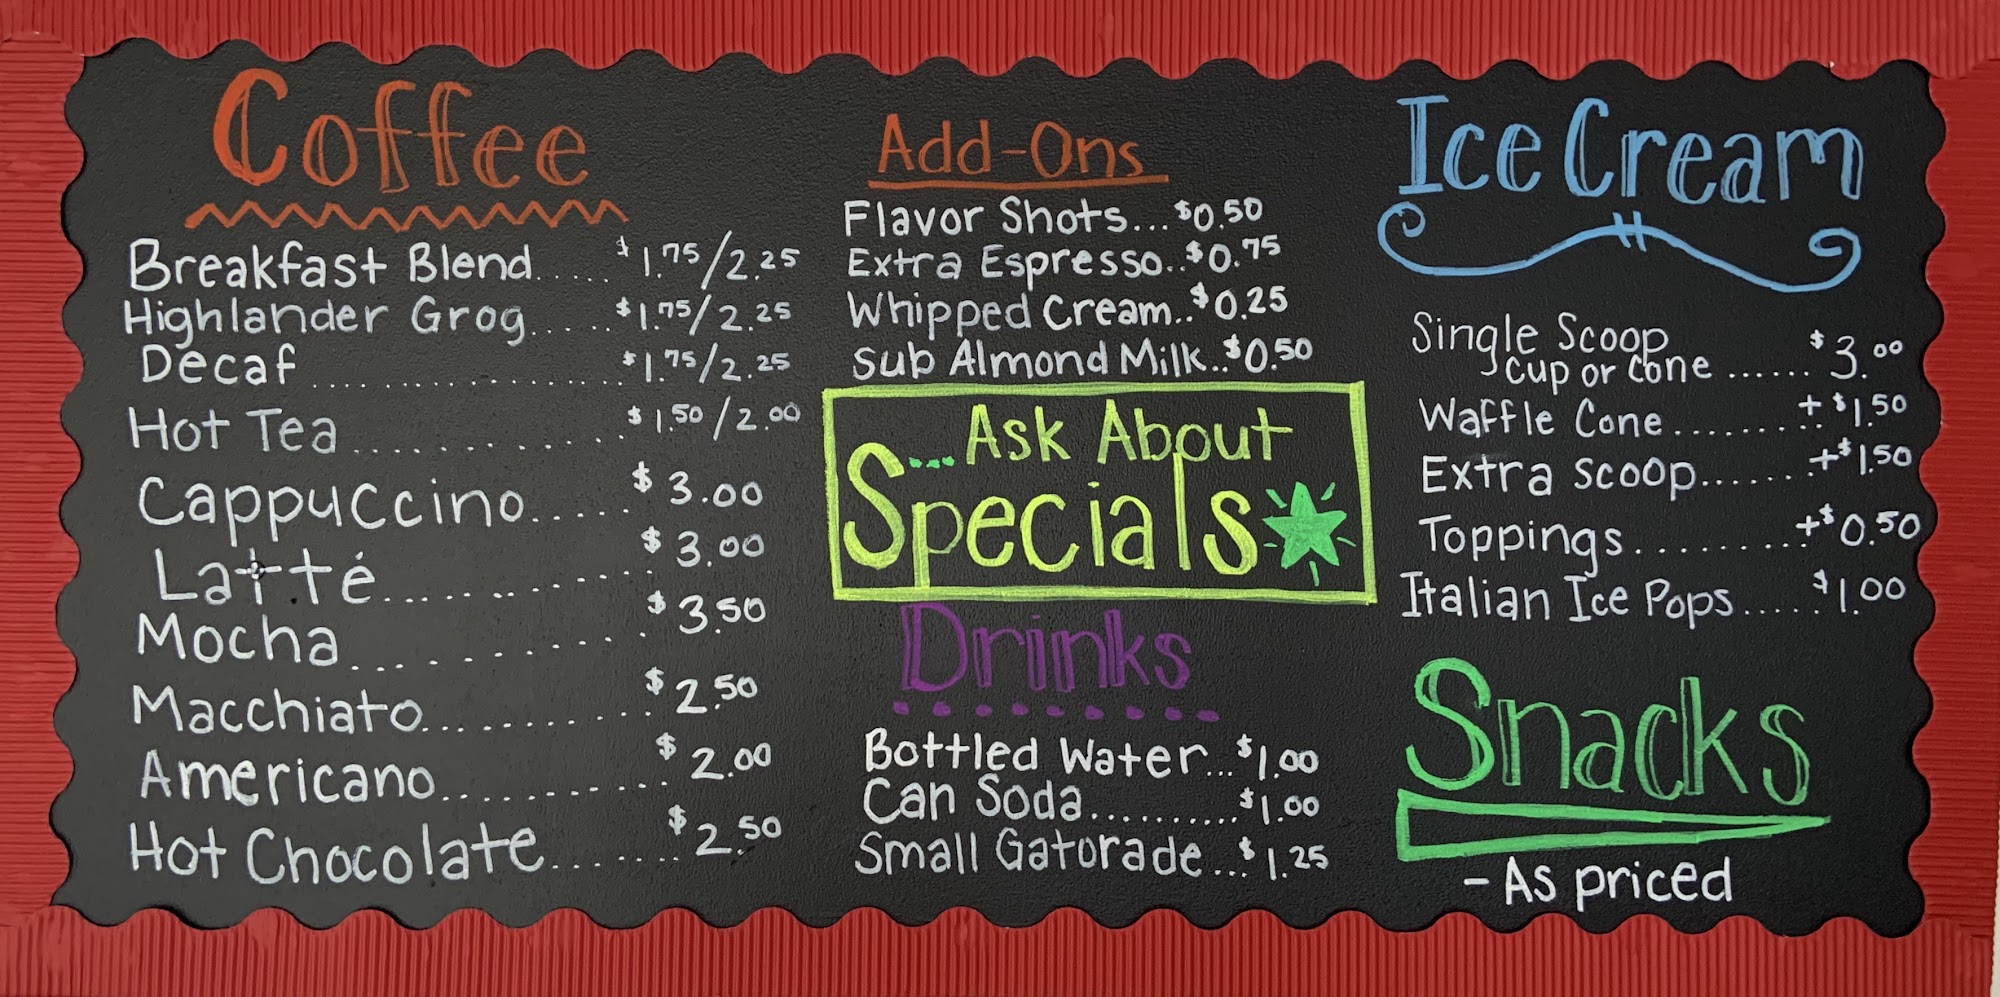 Coffee
Breakfast Blend..... $1.75/2.25
Highlander Grog...... $1.75/2.25
Decaf.................... $1.75/2.25
Hot Tea.................. $1.50/2.00
Cappuccino...... $3.00
Latté................ $3.00
Mocha............... $3.50
Macchiato............ $2.50
Americano............ $2.00
Hot Chocolate........ $2.50
Add-Ons
Flavor Shots...$0.50
Extra Espresso..$0.75
Whipped Cream..$0.25
Sub Almond Milk..$0.50
...Ask About
Specials
Drinks
Bottled Water...$1.00
Can Soda..........$1.00
Small Gatorade...$1.25
Ice Cream
Single Scoop
Cup or Cone ......$3.00
Waffle Cone........+$1.50
Extra Scoop.......+$1.50
Toppings.........+$0.50
Italian Ice Pops.....$1.00
Snacks
- As priced